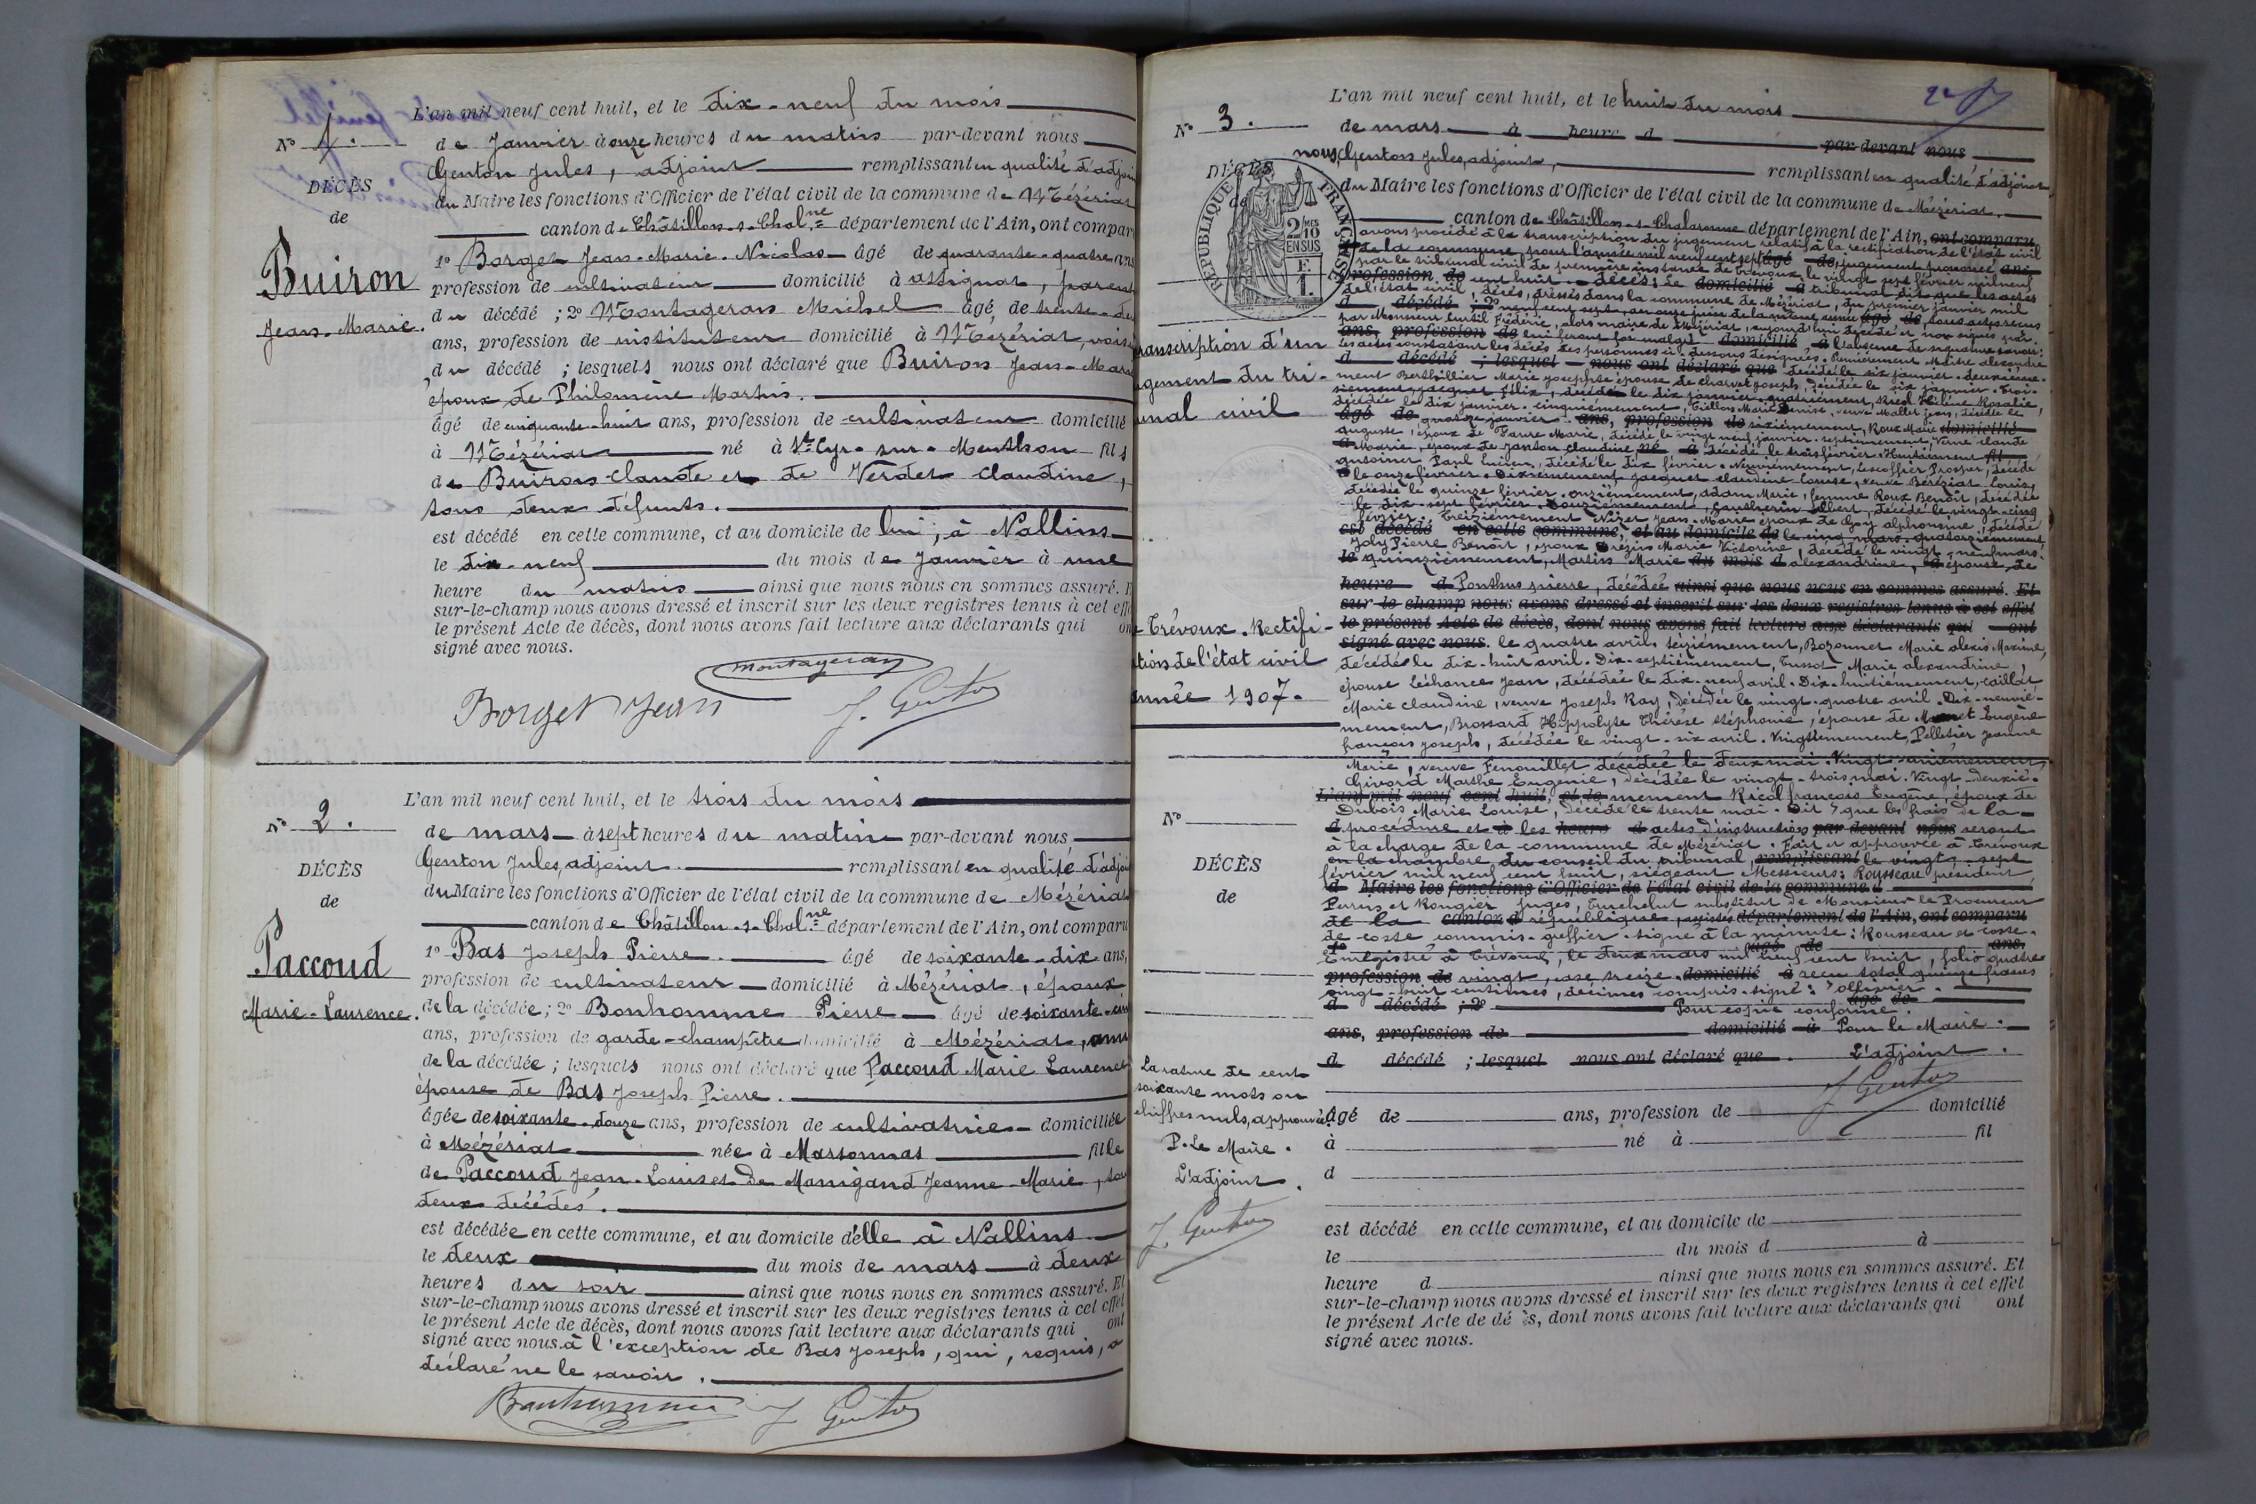 L'an mil neuf cent huit, et le dix-neuf du mois
N° 1.
de Janvier à onze heures du matin par-devant nous
Genton Jules, adjoint remplissant en qualité d'adjoin
DÉCÈS
du Maire les fonctions d'Officier de l'état civil de la commune de Mézériat
de
canton de Châtillon-s-Chal.ne département de l'Ain, ont compar
Buiron
Jean-Marie.
1° Borget Jean-Marie-Nicolas âgé de quarante-quatre ans
profession de cultivateur domicilié à attignat, parent
du décédé ; 2° Montageran Michel âgé de trente-
ans, profession de instituteur domicilié à Mézériat, voisi
du décédé ; lesquels nous ont déclaré que Buiron Jean-Mar
époux de Philomène Martin.
âgé de cinquante-huit ans, profession de cultivateur domicilié
à Mézériat né à St Cyr-sur-Menthon fils
de Buiron Claude et de Verdet Claudine,
tous deux défunts.
est décédé en cette commune, et au domicile de lui, à Nallins
le dix-neuf du mois de Janvier à une
heure du matin ainsi que nous nous en sommes assuré. E
sur-le-champ nous avons dressé et inscrit sur les deux registres tenus à cet eff
le présent Acte de décès, dont nous avons fait lecture aux déclarants qui on
signé avec nous.
Montageran
Borget Jean J. Genton
L'an mil neuf cent huit, et le trois du mois
N° 2.
de mars à sept heures du matin par-devant nous,
Genton Jules, adjoint remplissant en qualité d'adjoi
DÉCÈS
du Maire les fonctions d'Officier de l'état civil de la commune de Mézériat
de
canton de Châtillon-s-Chal.ne département de l'Ain, ont comparu
Paccoud
Marie-Laurence.
1° Bas Joseph Pierre âgé de soixante-dix ans,
profession de cultivateur domicilié à Mézériat, époux
de la décédée ; 2° Bonhomme Pierre âgé de soixante-cin
ans, profession de garde-champêtre domicilié à Mézériat, ami
de la décédée ; lesquels nous ont déclaré que Paccoud Marie Laurence
épouse de Bas Joseph Pierre.
âgée de soixante-douze ans, profession de cultivatrice domiciliée
à Mézériat née à Marsonnas fille
de Paccoud Jean-Louis et de Manigand Jeanne-Marie, tou
deux décédés.
est décédée en cette commune, et au domicile d'elle à Nallins
le deux du mois de mars à deux
heures du soir ainsi que nous nous en sommes assuré. Et
sur-le-champ nous avons dressé et inscrit sur les deux registres tenus à cet effet
le présent Acte de décès, dont nous avons fait lecture aux déclarants qui ont
signé avec nous à l'exception de Bas Joseph, qui, requis, a
déclaré ne le savoir.
Bonhomme J Genton
L'an mil neuf cent huit, et le huit du mois
N° 3.
de mars à heure d par-devant nous
nous, Genton Jules, adjoint, remplissant en qualité d'adjoint
DÉCÈS
de
RÉPUBLIQUE FRANÇAISE
2/10 MES
EN SUS
F.
1.
du Maire les fonctions d'Officier de l'état civil de la commune de Mézériat,
canton de Châtillon-s-Chalaronne département de l'Ain, ont comparu
avons procédé à la transcription du jugement relatif à la rectification de l'état civil
de la commune pour l'année mil neuf cent sept, jugement prononcé
par le tribunal civil de première instance de Trévoux le vingt sept février mil neuf
cent huit. décès: Le tribunal dit que les actes
de l'état civil, décès, dressés dans la commune de Mézériat, du premier janvier mil
neuf cent sept, au onze juin de la même année, tous actes reçus
ranscription d'un
gement du tri-
unal civil
les actes constatant les décès des personnes ci-dessous désignées.
décédé le dix janvier. cinquièmement,
quatorze janvier. sixièmement, Roux Marie
époux de Favre Marie, décédé le vingt neuf janvier. septièmement,
décédé le trois février. Huitièmement
Paul Lucien, décédé le dix février. Neuvièmement, Lescoffier Prosper, décédé
le onze février. Dixièmement, Jacquet Claudine Louise, veuve Béréziat Louis,
décédée le quinze février. onzièmement, adam Marie, femme Roux Benoît, décédée
le dix-sept février. Douzièmement, Gauthorin Albert, décédé le vingt-cinq
février. Treizièmement Nizet Jean-Marie époux de Goy alphonsine, décédé
est décédé en cette commune, et au domicile de le cinq mars. quatorzièmement
Joly Pierre Benoît, époux Marie Victorine, décédé le vingt-neuf mars.
le quinzièmement, Martin Marie du mois d alexandrine, à épouse de
heure d Ponthus pierre, décédée ainsi que nous nous en sommes assuré. Et
sur-le-champ nous avons dressé et inscrit sur les deux registres tenus à cet effet
e Trévoux. Rectifi-
le présent Acte de décès, dont nous avons fait lecture aux déclarants qui ont
signé avec nous. le quatre avril. seizièmement, Bozonnet Marie alexis Maxime,
tion de l'état civil
décédé le dix-huit avril. Dix-septièmement, Tussot Marie alexandrine,
nnée 1907.
épouse Léchance Jean, décédée le dix-neuf avril. Dix-huitièmement, Caillat
Marie Claudine, veuve Joseph Ray, décédée le vingt-quatre avril. Dix-neuviè-
mement, Brossard Hippolyte Thérèse Stéphanie, épouse de Eugène
françois joseph, décédée le vingt-six avril. Vingtièmement, Pelletier Jeanne
Marie, veuve Fenouillet décédée le deux mai. Vingt-unièmement,
Givord Marthe Eugénie, décédée le vingt-trois mai. Vingt-deuxiè-
L'an mil neuf cent huit, et le mement Ricol françois Eugène, époux de
Dubois Marie Louise, décédé le trente mai. Dit que les frais de la
N°
d procédure et à les heure d actes d'instruction par-devant nous seront
à la charge de la commune de Mézériat. Fait et approuvé à Trévoux
DÉCÈS
en la chambre du conseil du tribunal, remplissant le vingt-sept
février mil neuf cent huit, siégeant Messieurs: Rousseau président,
d Maire les fonctions d'Officier de l'état civil de la commune d
de
Perrin et Rougier juges, Turchelut substitut de Monsieur le Procureur
de la canton d république, assistés département de l'Ain, ont comparu
de Cosse commis-greffier. signé à la minute: Rousseau et Cosse.
1° âgé de ans,
Enregistré à Trévoux, le deux mars mil neuf cent huit, folio quatre
profession de vingt, case treize. domicilié à reçu total quinze francs
vingt-huit centimes, décimes compris. signé: Ollivier.
d décédé ; 2° Pour copie conforme. âgé de
ans, profession de domicilié à Pour le Maire.
d décédé ; lesquel nous ont déclaré que L'adjoint.
J Genton
La rature de cent
soixante mots ou
chiffres nuls, approuvée.
P. Le Maire.
L'adjoint.
J. Genton
âgé de ans, profession de domicilié
à né à fil
d
est décédé en cette commune, et au domicile de
le du mois d à
heure d ainsi que nous nous en sommes assuré. Et
sur-le-champ nous avons dressé et inscrit sur les deux registres tenus à cet effet
le présent Acte de dé s, dont nous avons fait lecture aux déclarants qui ont
signé avec nous.